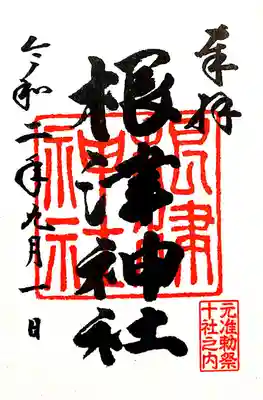 奉拝
根津神社
根津神社
元准勅祭
十社之内
令和二年九月一日